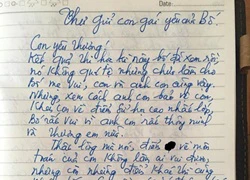 Thư gửi con gái yêu của Bố.
Con yêu thương!
Kết quả thi học kì này bố đã xem rồi,
nó không quá tệ nhưng chưa làm cho
bố mẹ vui, con và anh con cũng vậy.
Nhưng, xem cách anh con bảo vệ con,
khi con về điểm số hơn cao nhất lớp
Bố rất vui vì anh con rất thông minh
và thương em nữa.
Thấu lòng mà nói, điểm về môn
toán của con không làm ai vui được,
nhưng có những điểm khác thì cũng